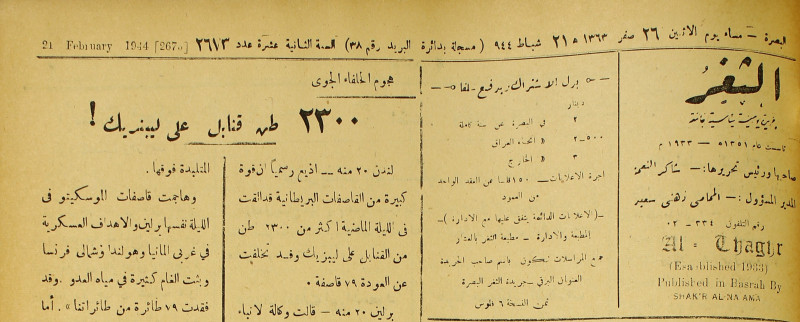 البصرة – مساء يوم الاثنين ٢٦ صفر ١٣٦٣ ه ٢١ شباط ٩٤٤ ( مسجلة بدائرة البريد رقم ٣٨ ) السنة الثانية عشرة عدد ٢٦١٣ 21 February 1944
الثغر
تأسست عام ١٣٥١ه — ١٩٣٣ م
صاحبها ورئيس تحريرها:— شاكر النعمة
المدير المسؤول:— المحامي زهدي سعيد
رقم التلفون
Al - Thaghr
(Established 1933)
Published in Basrah By
SHAK'R AL-NAAMA
بدل الاشتراك ويدفع سلفا
دينار
٢ في البصرة عن سنة كاملة
٢-٥٠٠ انحاء العراق
٣ الخارج
اجرة الاعلانات — ١٥٠ فلسا عن العقد الواحد
من العمود
—(الاعلانات الدائمة يتفق عليها مع الادارة)—
المطبعة والادارة — مطبعة الثغر بالعشار
جميع المراسلات تكون باسم صاحب الجريدة
العنوان البرقي — جريدة الثغر البصرة
ثمن النسخة ٦ فلوس
هجوم الحلفاء الجوى
٢٣٠٠ طن قنابل على ليبزيك !
لندن ٢٠ منه — اذيع رسمياً ان قوة
كبيرة من القاصفات البريطانية قد القت
فى الليلة الماضية اكثر من ٢٣٠٠ طن
من القنابل على ليبزيك وقد تخلفت
عن العودة ٧٩ قاصفة .
برلين ٢٠ منه — قالت وكالة لانباء
المتلبدة فوقها .
وهاجمت قاصفات الموسكيتو فى
الليلة نفسها برلين والاهداف العسكرية
فى غربى المانيا وهولندا وشمالى فرنسا
وبثت الغام كثيرة فى مياه العدو . وقد
فقدت ٧٩ طائرة من طائراتنا » . أما